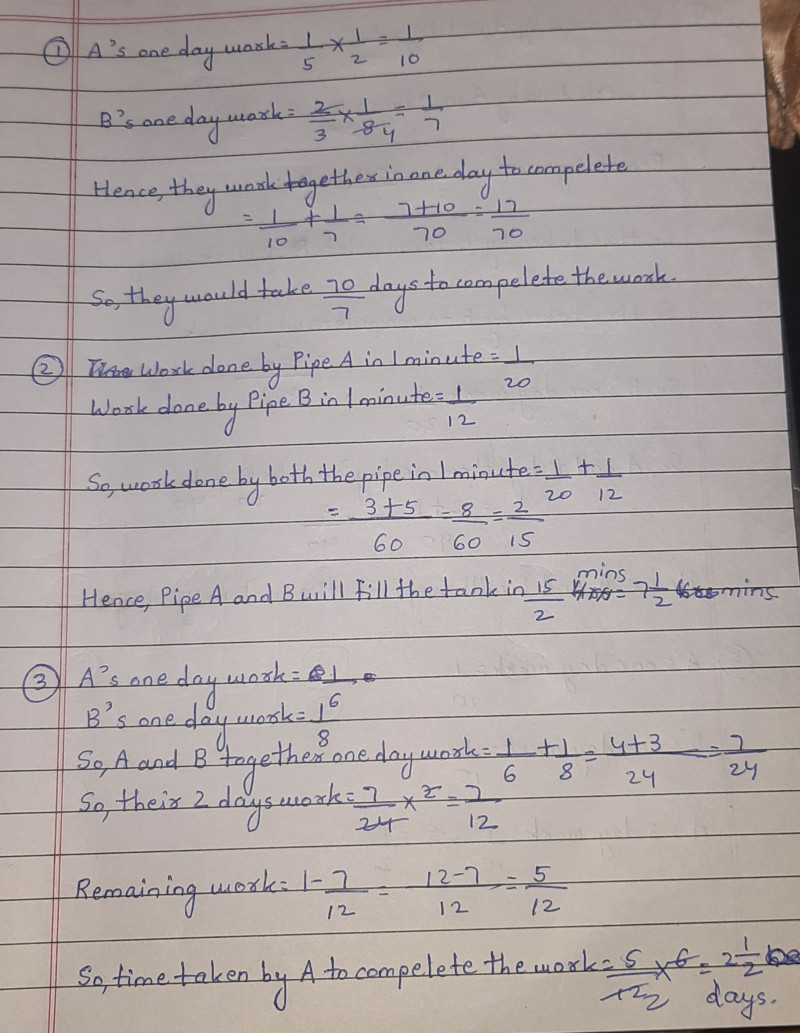 ① A's one day work = 1/5 × 1/2 = 1/10
B's one day work = 2/3 × 1/84 = 1/7
Hence, they work together in one day to compelete
= 1/10 + 1/7 = 7+10/70 = 17/70
So, they would take 70/7 days to compelete the work.
② Work done by Pipe A in 1 minute = 1/20
Work done by Pipe B in 1 minute = 1/12
So, work done by both the pipe in 1 minute = 1/20 + 1/12
= 3+5/60 = 8/60 = 2/15
Hence, Pipe A and B will Fill the tank in 15/2 mins = 7 1/2 mins
③ A's one day work = 1/6
B's one day work = 1/8
So, A and B together one day work = 1/6 + 1/8 = 4+3/24 = 7/24
So, their 2 days work = 7/24 × 2 = 7/12
Remaining work = 1 - 7/12 = 12-7/12 = 5/12
So, time taken by A to compelete the work = 5/12 2 × 6 = 2 1/2
days.